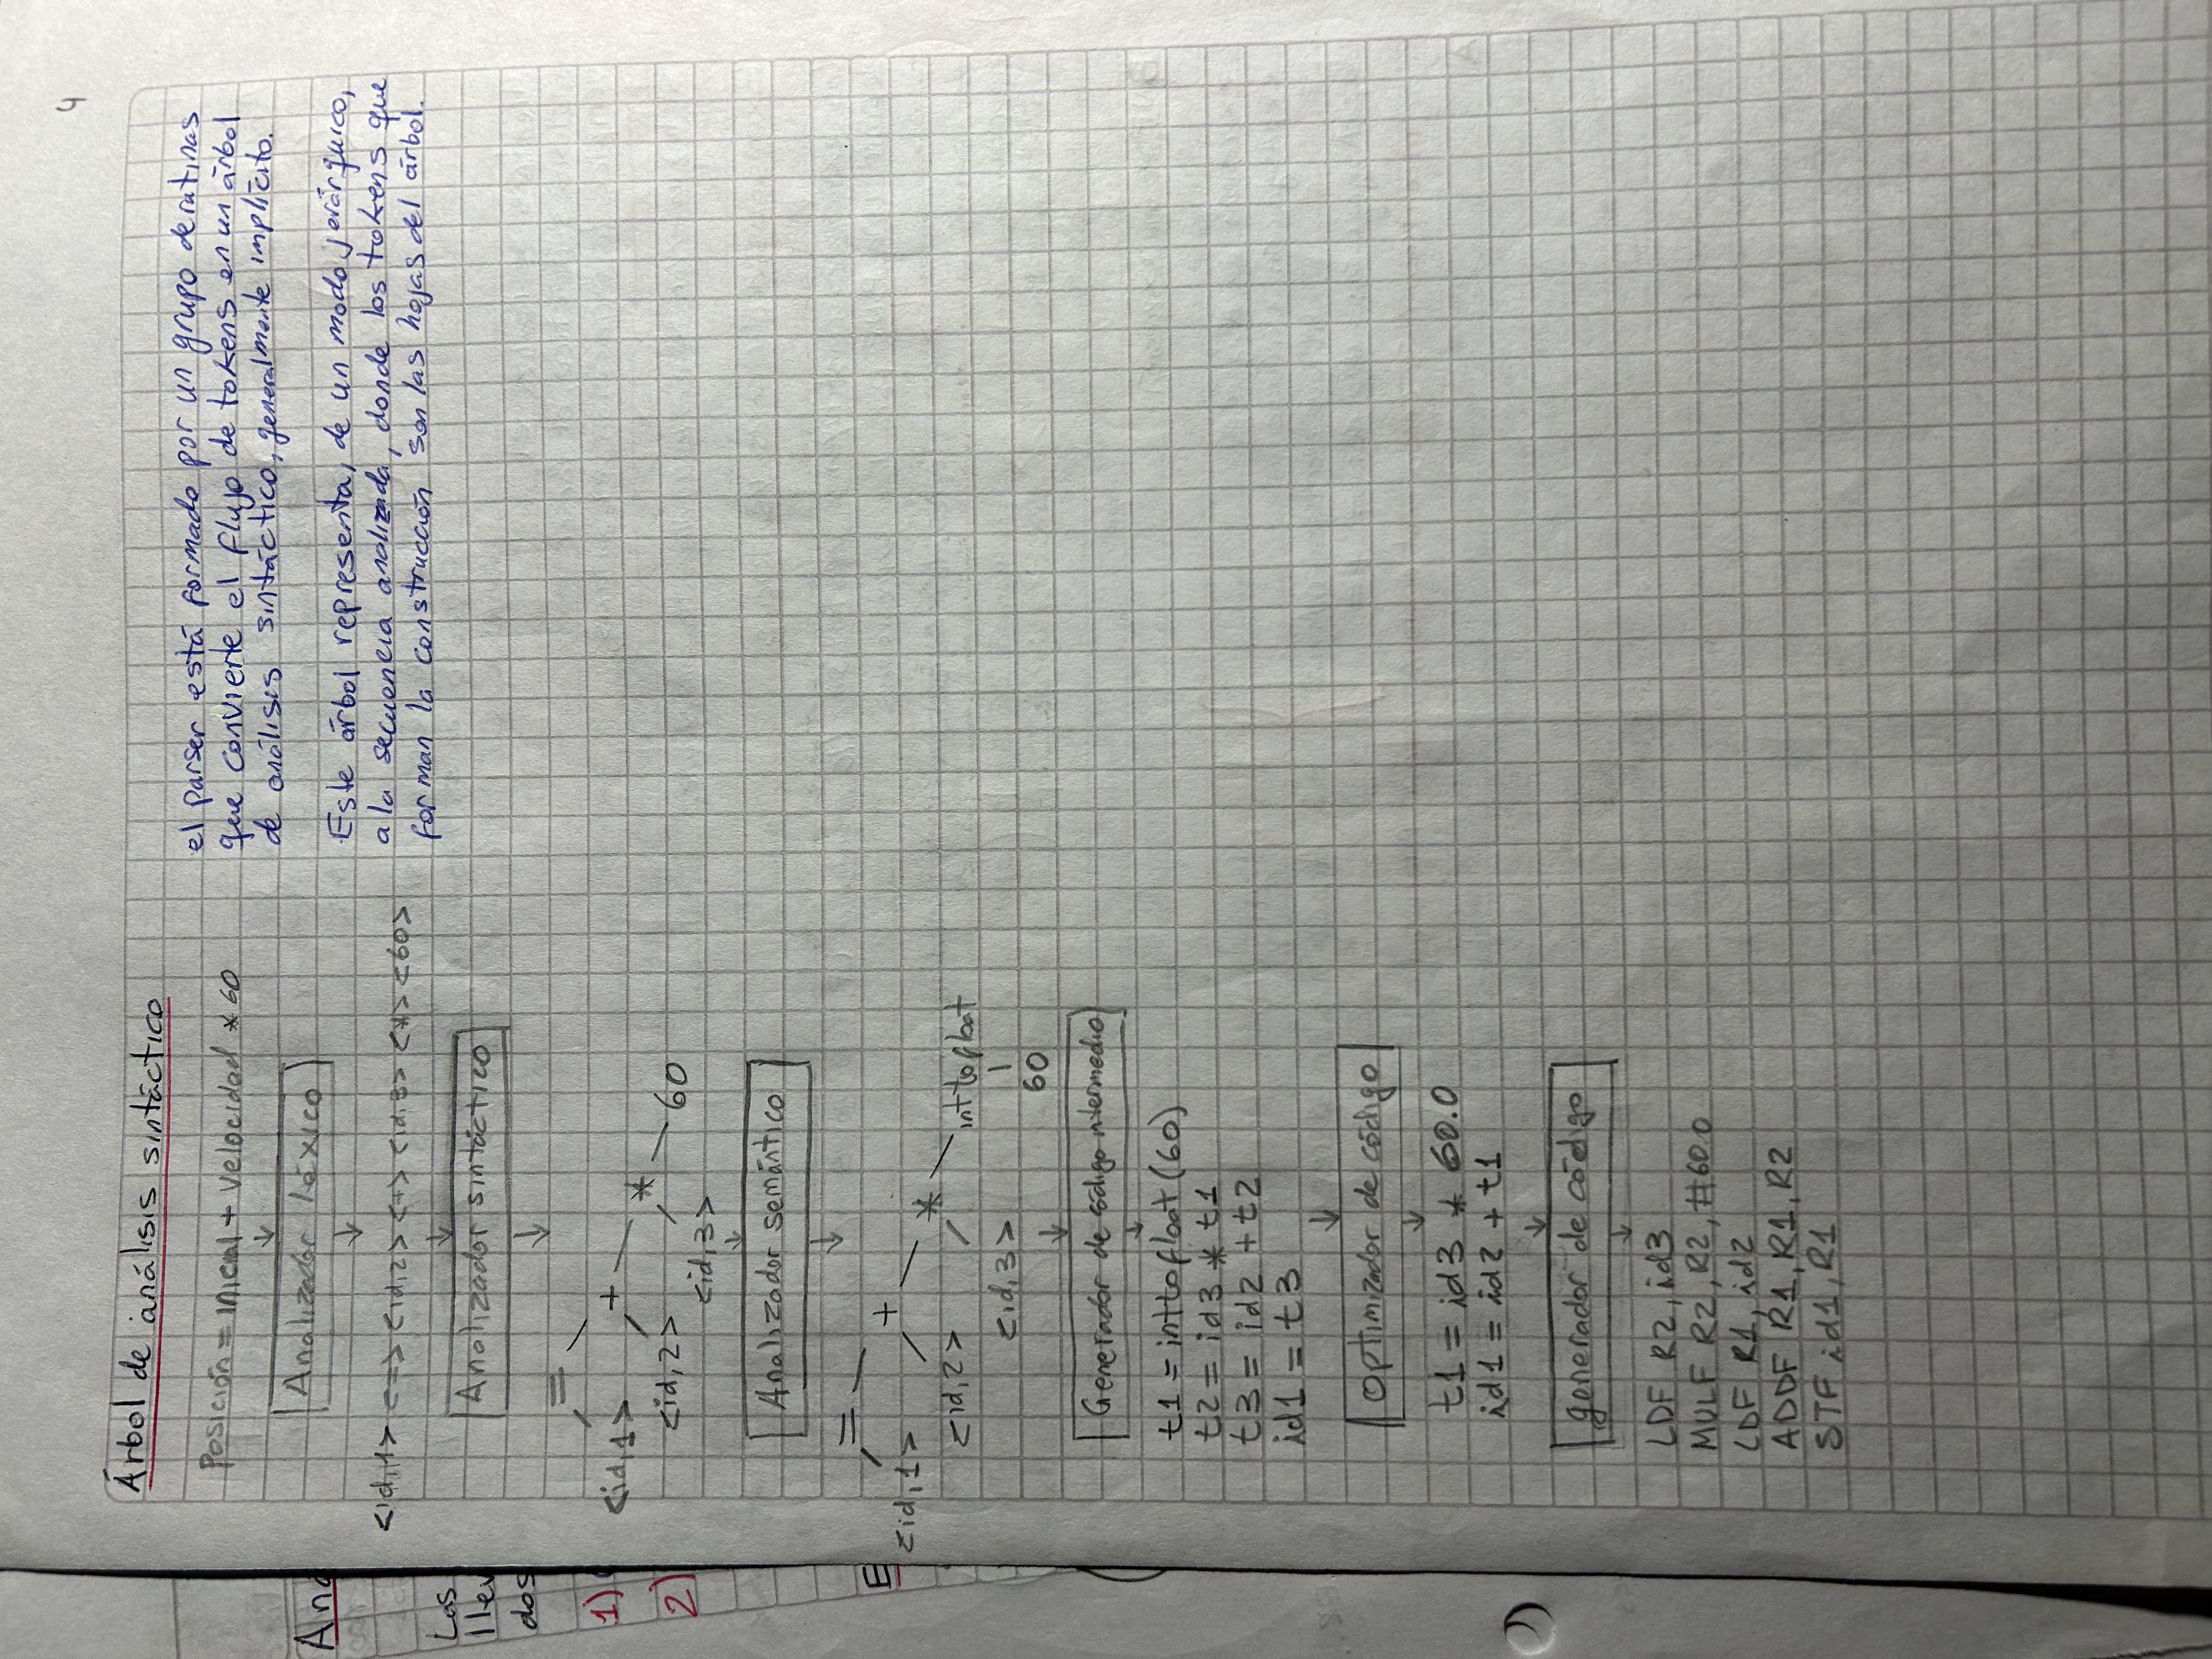 4
Árbol de análisis sintáctico
Posición = inicial + velocidad * 60
↓
Analizador léxico
↓
<id,1> <=> <id,2> <+> <id,3> <*> <60>
↓
Analizador sintáctico
↓
=
<id,1> +
<id,2> *
<id,3> 60
↓
Analizador semántico
↓
=
<id,1> +
<id,2> *
<id,3> inttofloat
60
↓
Generador de código intermedio
↓
t1 = inttofloat(60)
t2 = id3 * t1
t3 = id2 + t2
id1 = t3
↓
Optimizador de código
↓
t1 = id3 * 60.0
id1 = id2 + t1
↓
generador de código
↓
LDF R2, id3
MULF R2, R2, #60.0
LDF R1, id2
ADDF R1, R1, R2
STF id1, R1
el parser está formado por un grupo de rutinas
que convierte el flujo de tokens en un árbol
de análisis sintáctico, generalmente implícito.
Este árbol representa, de un modo jerárquico,
a la secuencia analizada, donde los tokens que
forman la construcción son las hojas del árbol.
Las
1)
2)
E